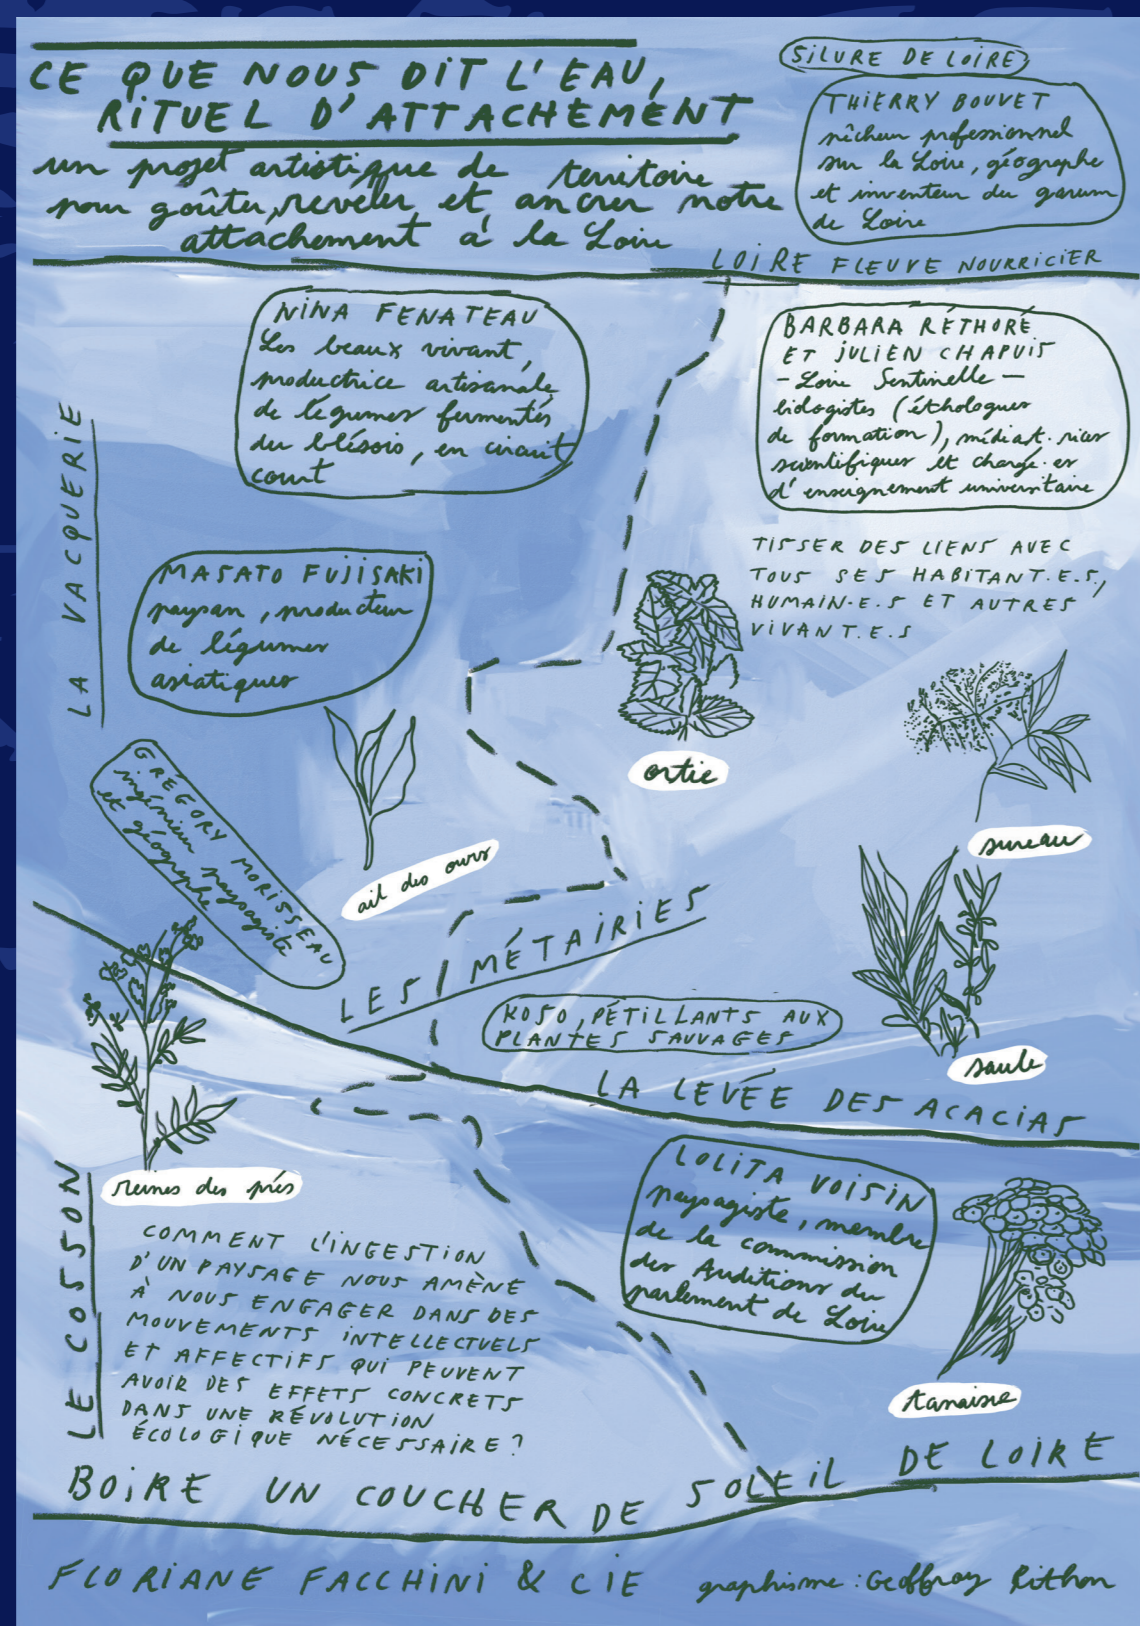 CE QUE NOUS DIT L'EAU,
RITUEL D'ATTACHEMENT
un projet artistique de territoire
pour goûter, reveler et ancrer notre
attachement à la Loire
SILURE DE LOIRE
THIERRY BOUVET
pêcheur professionnel
sur la Loire, géographe
et inventeur du garum
de Loire
LOIRE FLEUVE NOURRICIER
NINA FENATEAU
Les beaux vivant,
productrice artisanale
de légumes fermentés
du blésois, en circuit
court
BARBARA RÉTHORÉ
ET JULIEN CHAPUIS
- Loire Sentinelle -
biologistes (éthologues
de formation), médiat·rices
scientifiques et chargé·es
d'enseignement universitaire
LA VACQUERIE
MASATO FUJISAKI
paysan, producteur
de légumes
asiatiques
TISSER DES LIENS AVEC
TOUS SES HABITANT.E.S,
HUMAIN·E.S ET AUTRES
VIVANT.E.S
ortie
sureau
GRÉGORY MORISSEAU
ingénieur paysagiste
et géographe
ail des ours
LES MÉTAIRIES
KOSO, PÉTILLANTS AUX
PLANTES SAUVAGES
saule
LA LEVÉE DES ACACIAS
reines des prés
LOLITA VOISIN
paysagiste, membre
de la commission
des Auditions du
parlement de Loire
LE COSSON
COMMENT L'INGESTION
D'UN PAYSAGE NOUS AMÈNE
À NOUS ENGAGER DANS DES
MOUVEMENTS INTELLECTUELS
ET AFFECTIFS QUI PEUVENT
AVOIR DES EFFETS CONCRETS
DANS UNE RÉVOLUTION
ÉCOLOGIQUE NÉCESSAIRE ?
tanaisie
BOIRE UN COUCHER DE SOLEIL DE LOIRE
FLORIANE FACCHINI & CIE
graphisme : Geoffroy Pithon